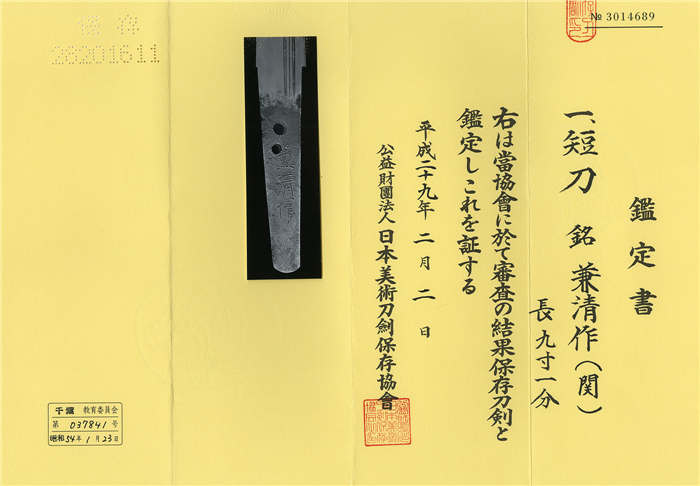 № 3014689
鑑定書
一、短刀 銘 兼清作(関)
長九寸一分
右は當協會に於て審査の結果保存刀剣と
鑑定しこれを証する
平成二十九年 二月 二日
公益財團法人 日本美術刀劍保存協會
26201611
千葉 教育委員会
第 037841 号
昭和54年1月23日